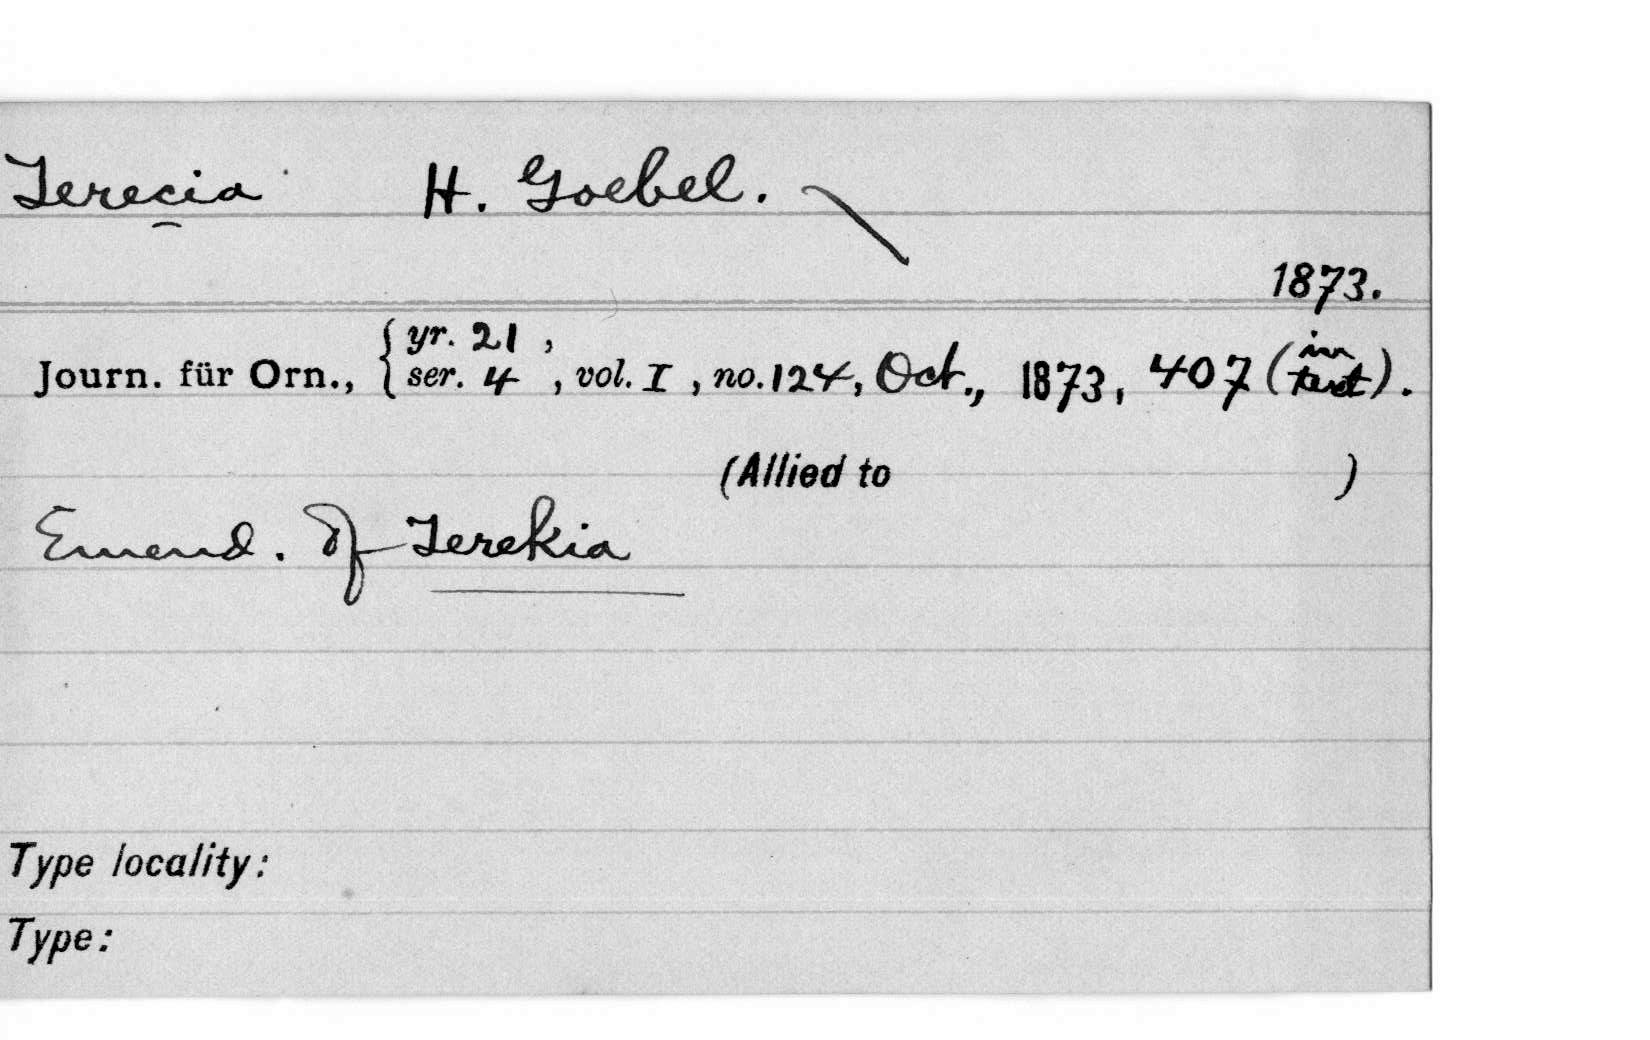 Terecia H. Goebel.
1873.
Journ. für Orn., { yr. 21 , ser. 4 , vol. I , no. 124, Oct., 1873, 407 (in text).
(Allied to )
Emend. of Terekia
Type locality:
Type: